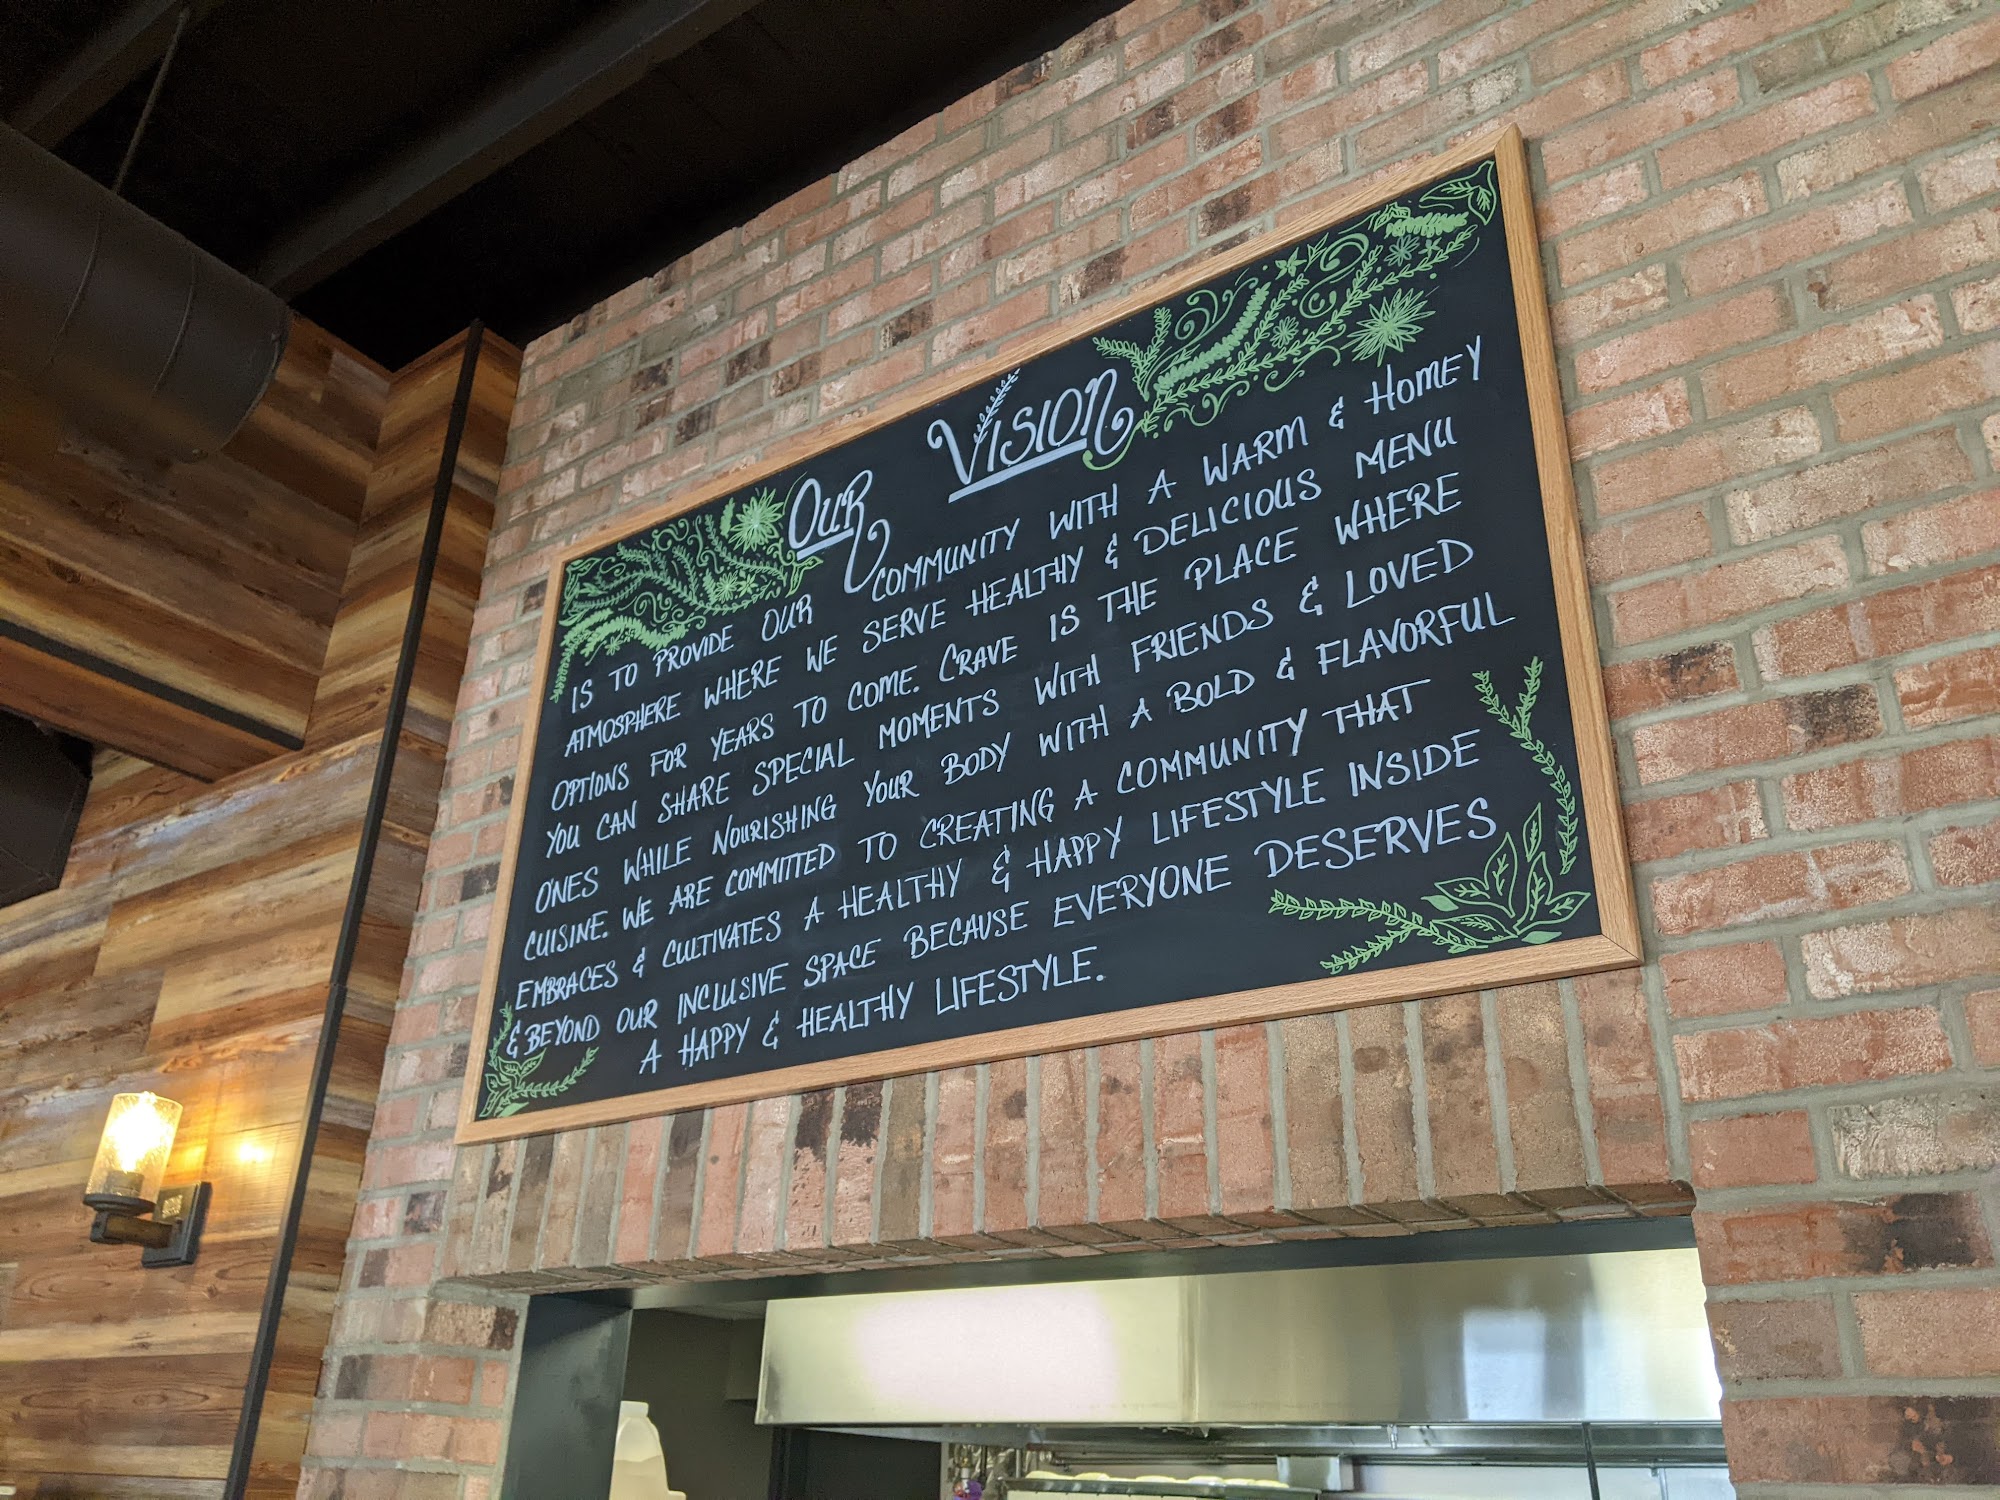 OUR VISION
IS TO PROVIDE OUR COMMUNITY WITH A WARM & HOMEY
ATMOSPHERE WHERE WE SERVE HEALTHY & DELICIOUS MENU
OPTIONS FOR YEARS TO COME. CRAVE IS THE PLACE WHERE
YOU CAN SHARE SPECIAL MOMENTS WITH FRIENDS & LOVED
ONES WHILE NOURISHING YOUR BODY WITH A BOLD & FLAVORFUL
CUISINE. WE ARE COMMITTED TO CREATING A COMMUNITY THAT
EMBRACES & CULTIVATES A HEALTHY & HAPPY LIFESTYLE INSIDE
& BEYOND OUR INCLUSIVE SPACE BECAUSE EVERYONE DESERVES
A HAPPY & HEALTHY LIFESTYLE.